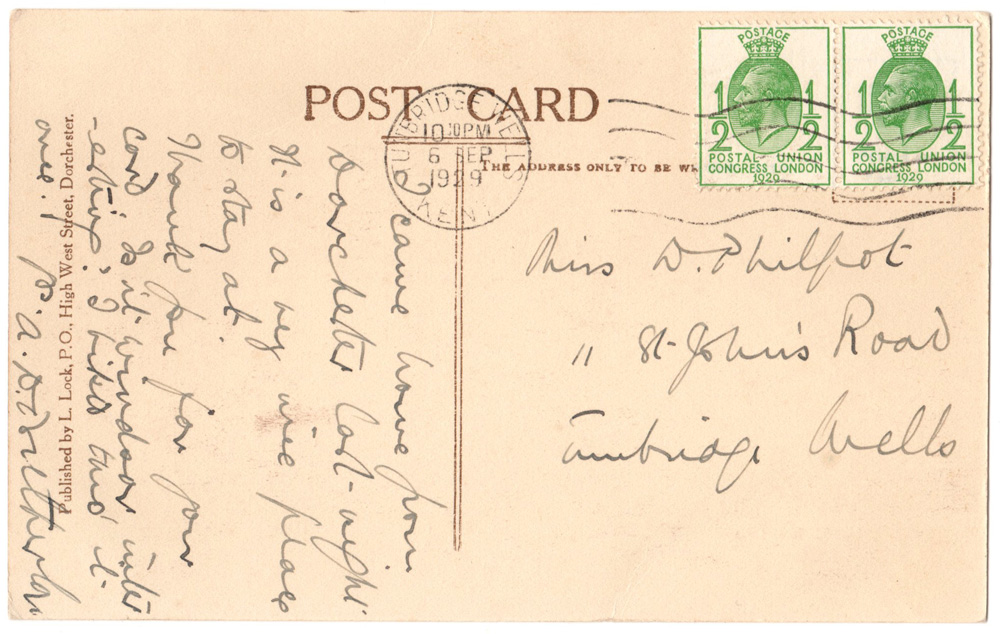 POST CARD
THE ADDRESS ONLY TO BE
TUNBRIDGE WELLS
10 30PM
6 SEP
1929
KENT
POSTAGE
1/2 1/2
POSTAL UNION
CONGRESS LONDON
1929
POSTAGE
1/2 1/2
POSTAL UNION
CONGRESS LONDON
1929
came home from
Dorchester last-night
It-is a very nice place
to stay at.
Thank you for your
card Is it Windsor inter
-esting? I liked this
one!
Miss D. Philpot
11 St-John's Road
Tunbridge Wells
Published by L. Lock, P.O., High West Street, Dorchester.